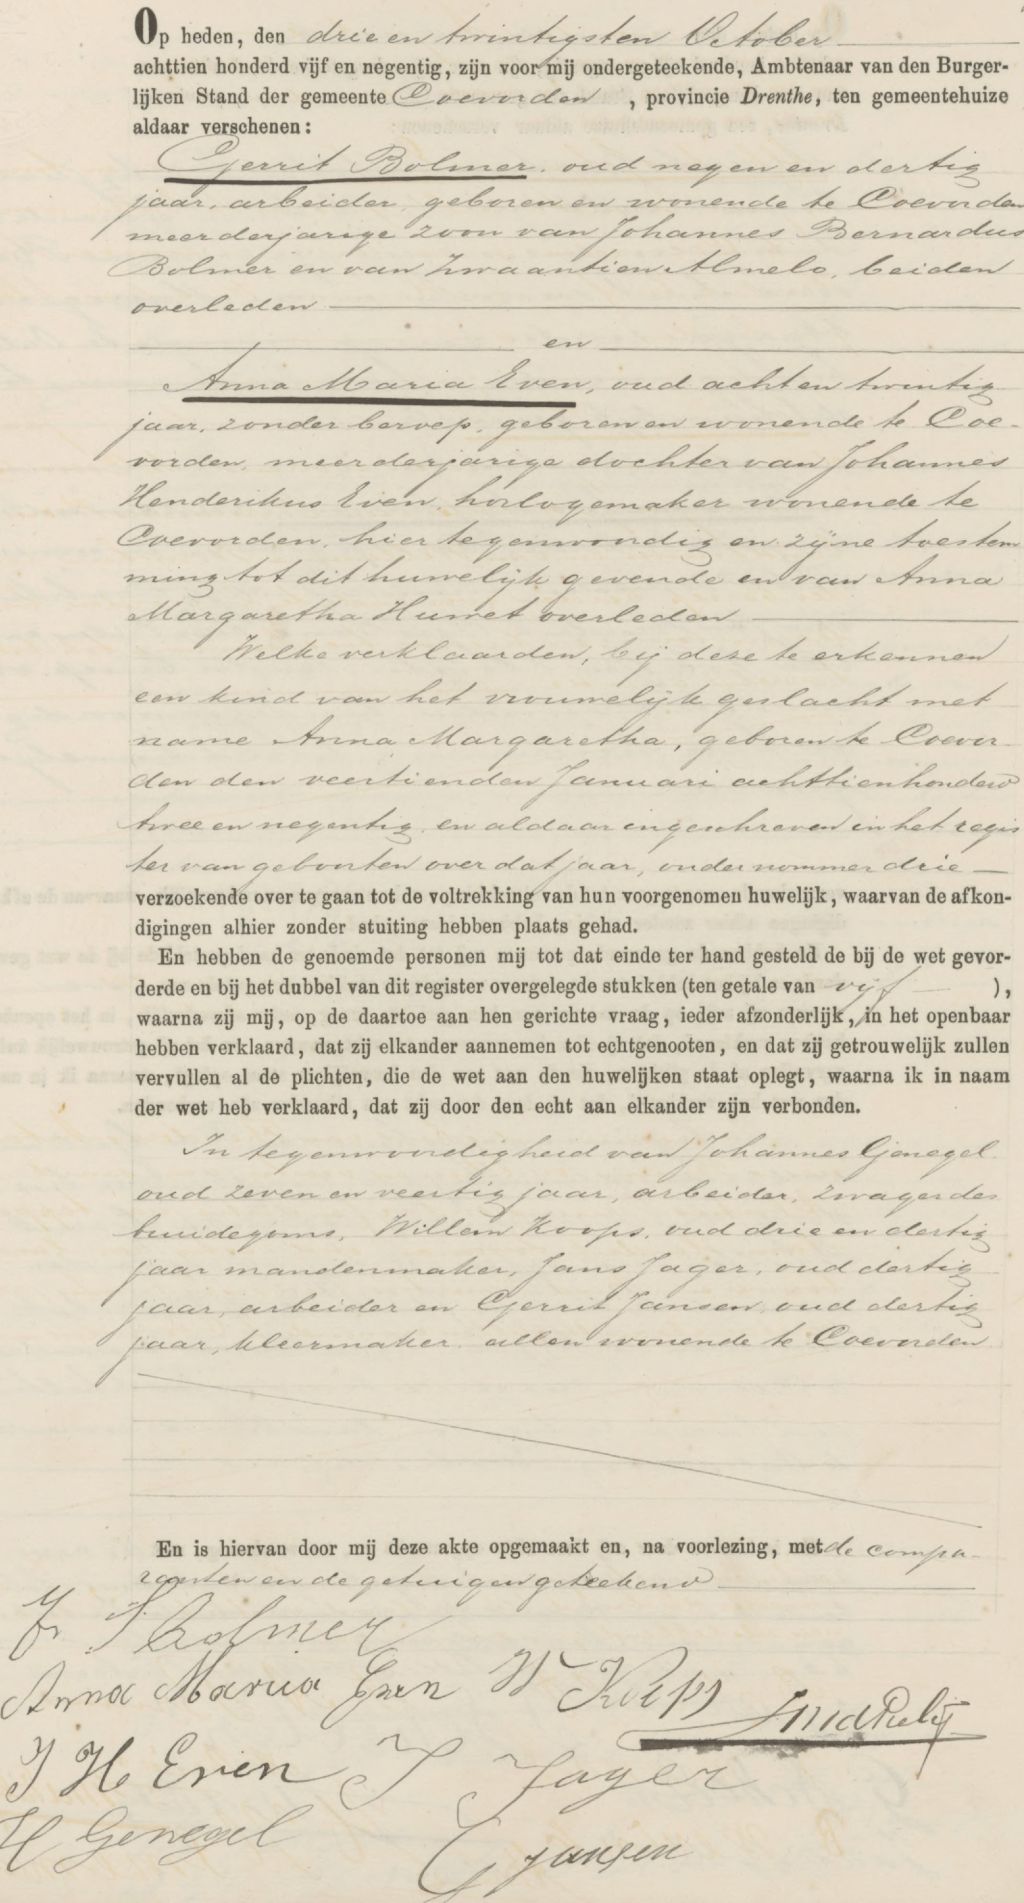 Op heden, den drie en twintigsten October
achttien honderd vijf en negentig, zijn voor mij ondergeteekende, Ambtenaar van den Burger-
lijken Stand der gemeente Coevorden, provincie Drenthe, ten gemeentehuize
aldaar verschenen:
Gerrit Bolmer, oud negen en dertig
jaar, arbeider, geboren en wonende te Coevorden
meerderjarige zoon van Johannes Bernardus
Bolmer en van Zwaantien Almelo, beiden
overleden
en
Anna Maria Even, oud acht en twintig
jaar, zonder beroep, geboren en wonende te Coe-
vorden, meerderjarige dochter van Johannes
Henderikus Even, horlogemaker wonende te
Coevorden, hier tegenwoordig en zijne toestem
ming tot dit huwelijk gevende en van Anna
Margaretha Humet overleden
Welke verklaarden, bij deze te erkennen
een kind van het vrouwelijk geslacht met
name Anna Margaretha, geboren te Coevor-
den den veertienden Januari achttienhonderd
twee en negentig en aldaar ingeschreven in het regis
ter van geboorten over dat jaar, onder nommer drie
verzoekende over te gaan tot de voltrekking van hun voorgenomen huwelijk, waarvan de afkon-
digingen alhier zonder stuiting hebben plaats gehad.
En hebben de genoemde personen mij tot dat einde ter hand gesteld de bij de wet gevor-
derde en bij het dubbel van dit register overgelegde stukken (ten getale van vijf),
waarna zij mij, op de daartoe aan hen gerichte vraag, ieder afzonderlijk, in het openbaar
hebben verklaard, dat zij elkander aannemen tot echtgenooten, en dat zij getrouwelijk zullen
vervullen al de plichten, die de wet aan den huwelijken staat oplegt, waarna ik in naam
der wet heb verklaard, dat zij door den echt aan elkander zijn verbonden.
In tegenwoordigheid van Johannes Genegel
oud zeven en veertig jaar, arbeider, zwager des
bruidegoms, Willem Koops, oud drie en dertig
jaar mandenmaker, Jans Jager, oud dertig
jaar, arbeider en Gerrit Jansen, oud dertig
jaar, kleermaker allen wonende te Coevorden
En is hiervan door mij deze akte opgemaakt en, na voorlezing, met de compa-
ranten en de getuigen geteekend
Bolmer
Anna Maria Even W Koops
J H Even J Jager
H Genegel
G Jansen